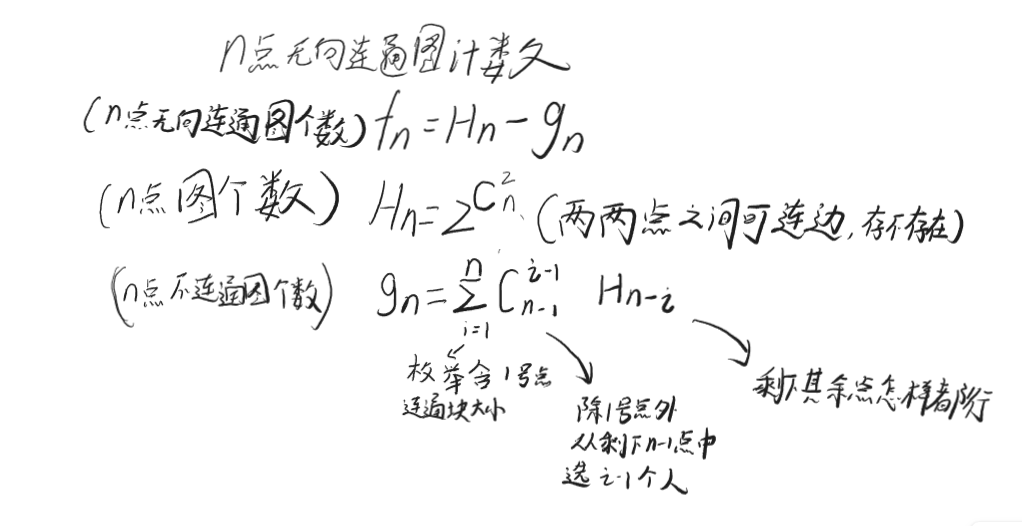 n点无向连通图计数
(n点无向连通图个数) fn=Hn-gn
(n点图个数) Hn=2^{C_n^2} (两两点之间可连边,存不存在)
(n点不连通图个数) gn=\sum_{i=1}^{n} C_{n-1}^{i-1} H_{n-i}
枚举含1号点
连通块大小
除1号点外
从剩下n-1点中
选i-1个人
剩下其余点怎样都行